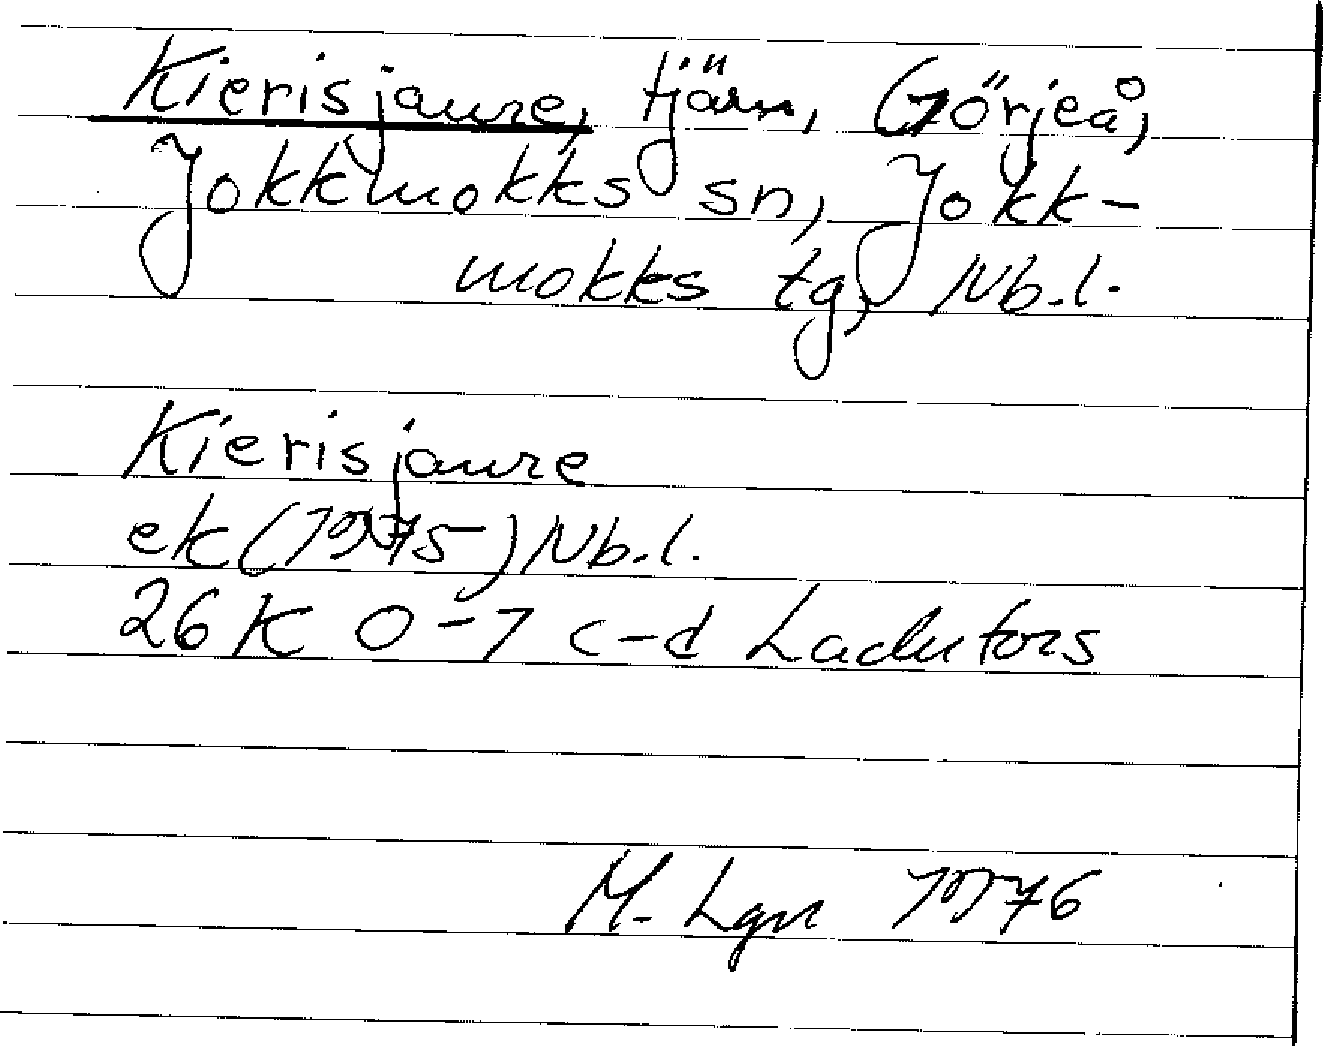 Kierisjaure, tjärn, Görjeå,
Jokkmokks sn, Jokk-
mokks tg, Nb.l.
Kierisjaure
ek (1975) Nb.l.
26 K 0-1 c-d Ladufors
M. Lgn 1976